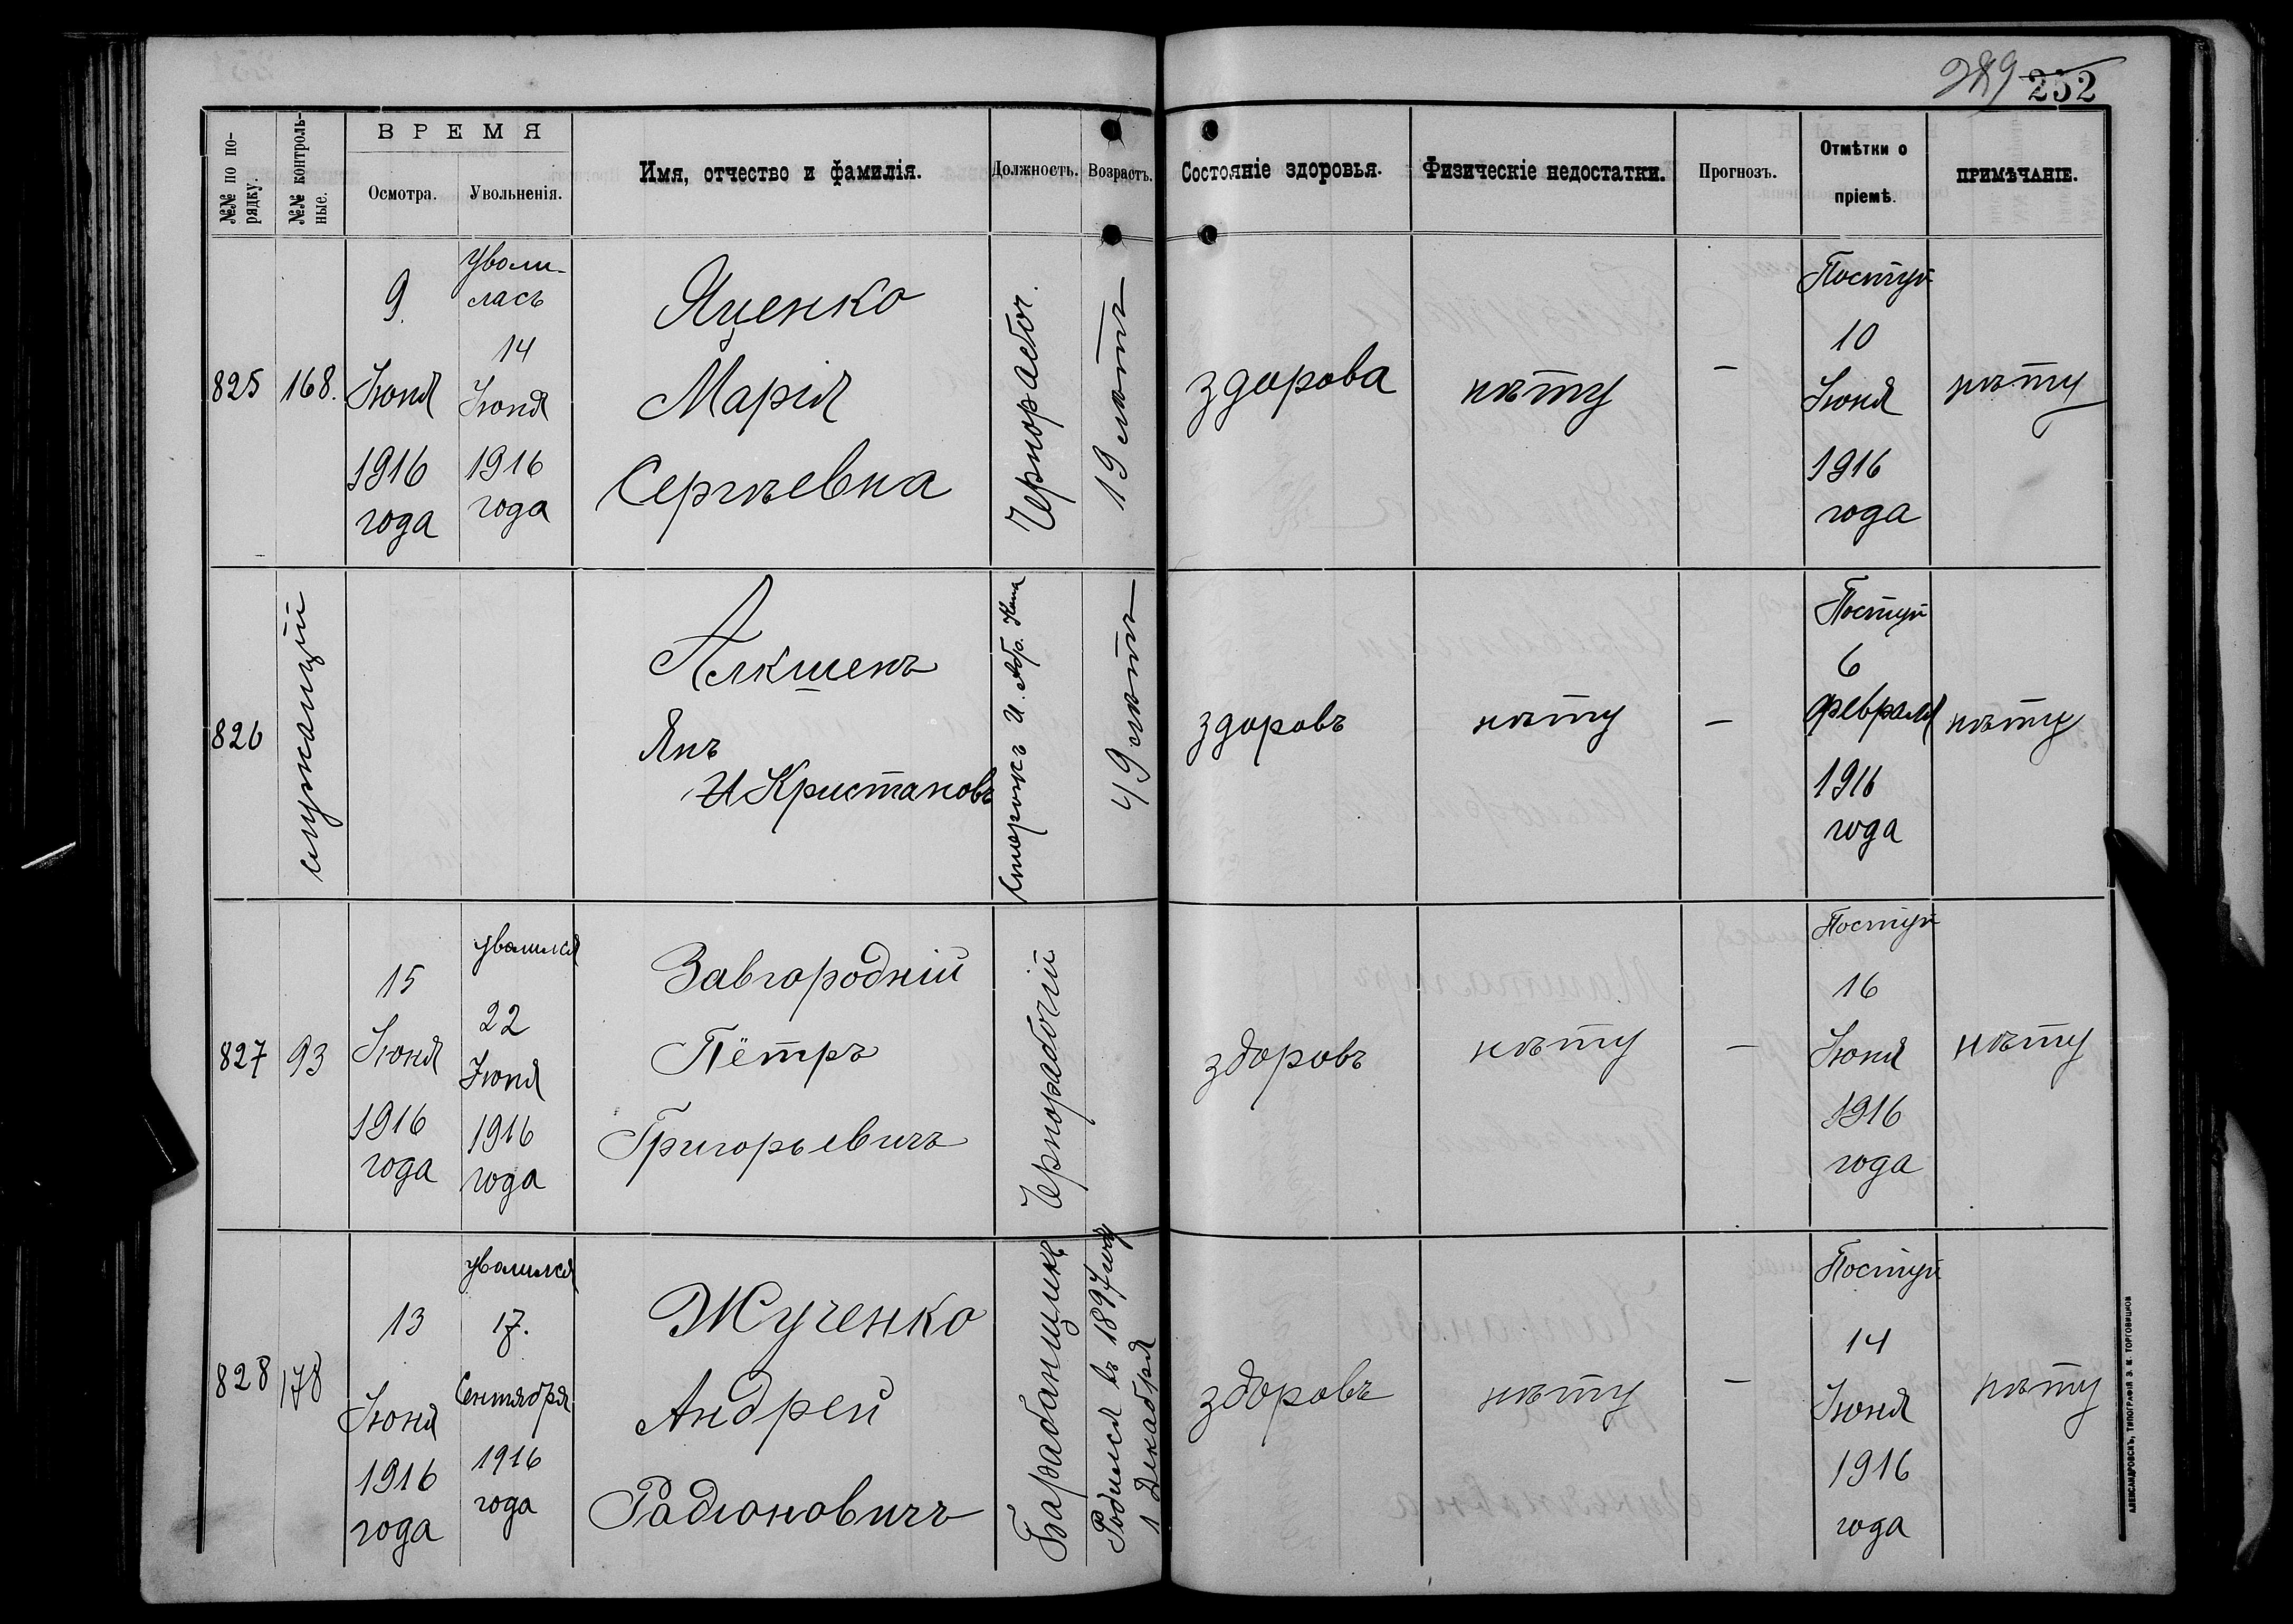 289 252
№№ по по-
рядку.
№№ контроль-
ные.
ВРЕМЯ
Осмотра.
Увольненія.
Имя, отчество и фамилія.
Должность.
Возрастъ.
Состояніе здоровья.
Физическіе недостатки.
Прогнозъ.
Отмѣтки о
пріемѣ.
ПРИМѢЧАНІЕ.
825
168.
9
Іюня
1916
года
Уволи-
лась
14
Іюня
1916
года
Яценко
Марія
Сергѣевна
Чернорабоч.
19 лѣтъ
здорова
нѣту
—
Поступ
10
Іюня
1916
года
нѣту
826
служащій
Алкшенъ
Янъ
Кристановъ
49 лѣтъ
здоровъ
нѣту
—
Поступ
6
февраля
1916
года
нѣту
827
93
15
Іюня
1916
года
уволился
22
Іюня
1916
года
Завгородній
Пётръ
Григорьевичъ
Чернорабочій
здоровъ
нѣту
—
Поступ
16
Іюня
1916
года
нѣту
828
178
13
Іюня
1916
года
уволился
17.
Сентября
1916
года
Жученко
Андрей
Радіоновичъ
Барабанщикъ
Родился въ 1897 году
1 Декабря
здоровъ
нѣту
—
Поступ
14
Іюня
1916
года
нѣту
АЛЕКСАНДРОВСКЪ, ТИПОГРАФІЯ З. М. ТОРГОВИЦКОВ